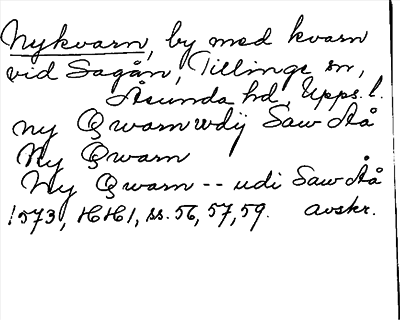 Nykvarn, by med kvarn
vid Sagån, Tillinge sn,
Åsunda hd, Upps. l.
ny Qwarn wdij Saw Åå
Ny Qwarn
Ny Qwarn -- udi Saw Åå
1573, HH1, ss. 56, 57, 59. avskr.